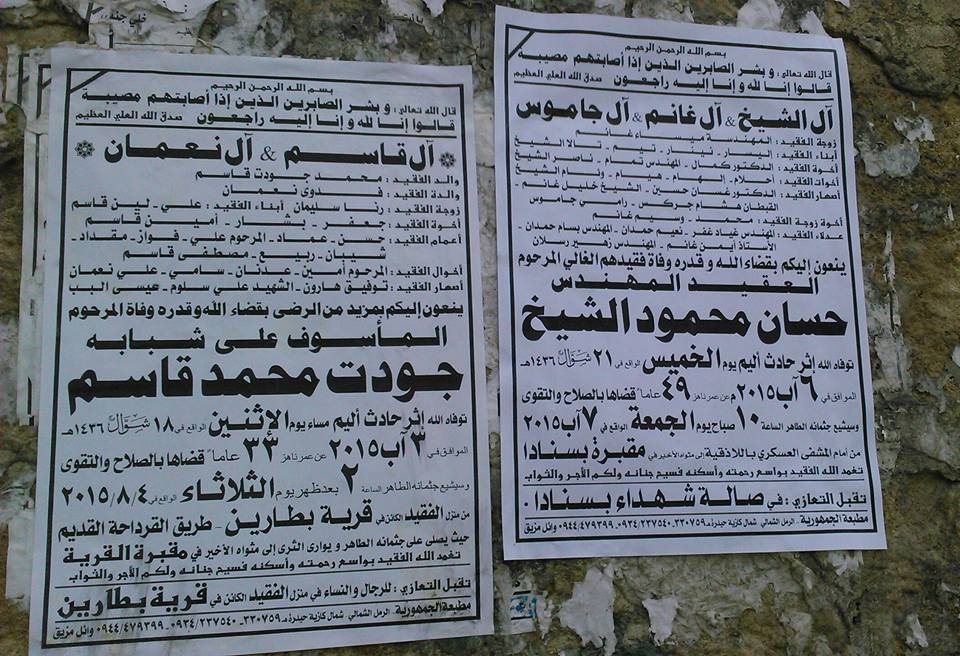 بسم الله الرحمن الرحيم
قال الله تعالى : و بشر الصابرين الذين إذا أصابتهم مصيبة
قالوا إنا لله و إنا إليه راجعون صدق الله العلي العظيم
آل الشيخ & آل غانم & آل جاموس
زوجة الفقيد : المهندسة ميساء غانم
أبناء الفقيد : اليسار - نيبار - تيم - تالا الشيخ
أخوة الفقيد : الدكتور كمال - المهندس تمام - ناصر الشيخ
أخوات الفقيد : أحلام - إلهام - هيام - وئام الشيخ
أصهار الفقيد : الدكتور غسان حسين - الشيخ خليل غانم -
القبطان هشام جركس - رامي جاموس
أخوة زوجة الفقيد : محمد - وسيم غانم
عدلاء الفقيد : المهندس غياد غفر - نعيم حمدان - المهندس بسام حمدان -
الأستاذ أيمن غانم - المهندس زهير رسلان
ينعون إليكم بقضاء الله و قدره وفاة فقيدهم الغالي المرحوم
العقيد المهندس
حسان محمود الشيخ
توفاه الله إثر حادث أليم يوم الخميس الواقع في ٢١ شوال ١٤٣٦هـ
الموافق في ٦ آب ٢٠١٥م عن عمر ناهز ٤٩ عاماً قضاها بالصلاح والتقوى
وسيشيع جثمانه الطاهر الساعة ١٠ صباح يوم الجمعة الواقع في ٧ آب ٢٠١٥
من أمام المشفى العسكري باللاذقية إلى مثواه الأخير في مقبرة بسنادا
تغمد الله الفقيد بواسع رحمته وأسكنه فسيح جنانه ولكم الأجر والثواب
تقبل التعازي : في صالة شهداء بسنادا .
مطبعة الجمهورية - الرمل الشمالي - شمال كازية حيدرة هـ ٣٣٠٧٥٩ - ٠٩٣٤/٢٣٧٥٤٠ - ٠٩٤٤/٤٧٩٣٩٩ وائل مزيق
بسم الله الرحمن الرحيم
قال الله تعالى : و بشر الصابرين الذين إذا أصابتهم مصيبة
قالوا إنا لله و إنا إليه راجعون صدق الله العلي العظيم
آل قاسم & آل نعمان
والد الفقيد : محمد جودت قاسم
والدة الفقيد : فدوى نعمان
زوجة الفقيد : رنا سليمان أبناء الفقيد : علي - لين قاسم
أخوة الفقيد : جعفر - بشار - أمين قاسم
أعمام الفقيد : حسن - عماد - المرحوم علي - فواز - مقداد -
شيبان - ربيع - مصطفى قاسم
أخوال الفقيد : المرحوم أمين - عدنان - سامي - علي نعمان
أصهار الفقيد : توفيق هارون - الشهيد علي سلوم - عيسى البب
ينعون إليكم بمزيد من الرضى بقضاء الله وقدره وفاة المرحوم
المأسوف على شبابه
جودت محمد قاسم
توفاه الله إثر حادث أليم مساء يوم الإثنين الواقع في ١٨ شوال ١٤٣٦هـ
الموافق في ٣ آب ٢٠١٥ عن عمر ناهز ٣٣ عاماً قضاها بالصلاح والتقوى
وسيشيع جثمانه الطاهر الساعة ٢ بعد ظهر يوم الثلاثاء الواقع في ٢٠١٥/٨/٤
من منزل الفقيد الكائن في قرية بطارين - طريق القرداحة القديم
حيث يصلى على جثمانه الطاهر و يوارى الثرى إلى مثواه الأخير في مقبرة القرية
تغمد الله الفقيد بواسع رحمته وأسكنه فسيح جنانه ولكم الأجر والثواب
تقبل التعازي : للرجال و النساء في منزل الفقيد الكائن في قرية بطارين
مطبعة الجمهورية - الرمل الشمالي - شمال كازية حيدرة هـ ٣٣٠٧٥٩ - ٠٩٣٤/٢٣٧٥٤٠ - ٠٩٤٤/٤٧٩٣٩٩ وائل مزيق